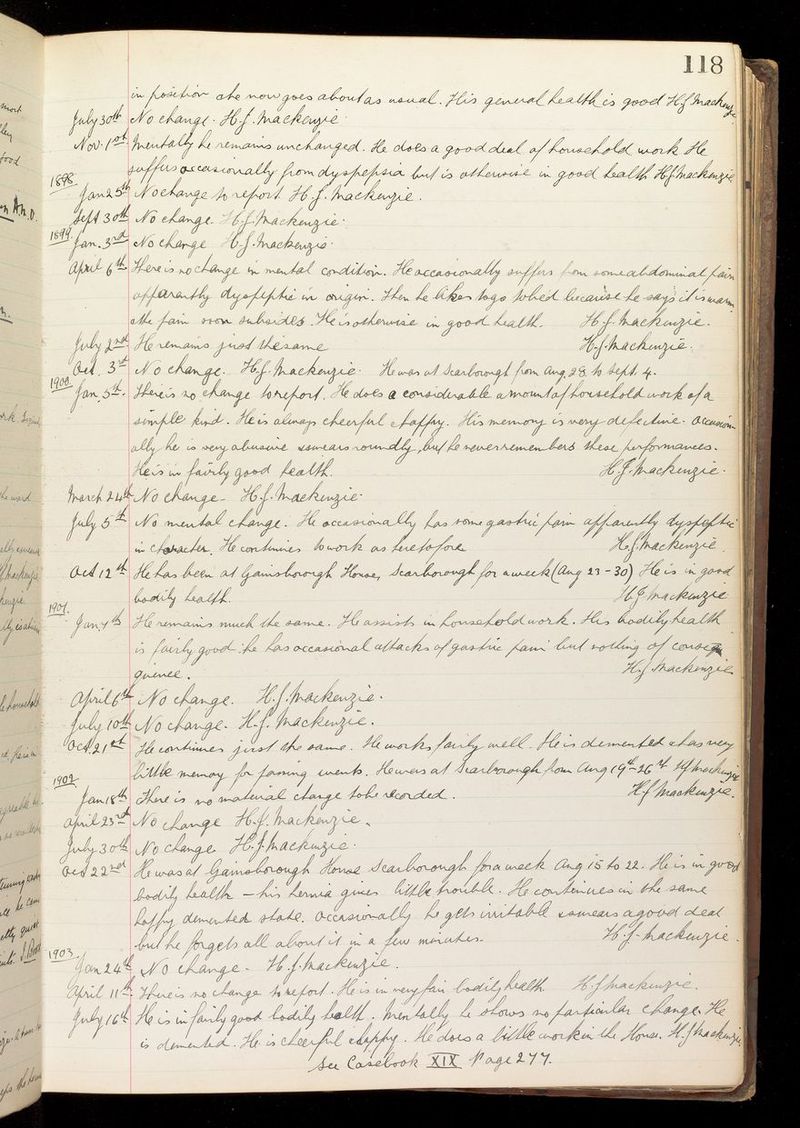 118
in position & he now goes about as usual. His general health is good H.J. Mackenzie
July 30th No change. H.J. Mackenzie.
Nov. 1st Mentally he remains unchanged. He does a good deal of household work. He
suffers occasionally from dyspepsia but is otherwise in good health H.J. Mackenzie
1898.
Jan 25th No change to report H.J. Mackenzie.
Sept 30th No change. H.J. Mackenzie.
1899.
Jan. 3rd No change H.J. Mackenzie.
April 6th There is no change in mental condition. He occasionally suffers from some abdominal pain
apparently dyspeptic in origin. Then he likes to go to bed because he says it is warm
& the pain soon subsides. He is otherwise in good health. H.J. Mackenzie.
July 2nd He remains just the same H.J. Mackenzie.
Oct. 3rd No change. H.J. Mackenzie. He was at Scarborough from Aug 28 to Sept. 4.
1900.
Jan. 5th. There is no change to report. He does a considerable amount of household work of a
simple kind. He is always cheerful & happy. His memory is very defective. Occasion
ally he is very abusive & swears roundly, but he never remembers these performances.
He is in fairly good health. H.J. Mackenzie.
March 24th No change - H.J. Mackenzie.
July 5th No mental change. He occasionally has some gastric pain apparently dyspeptic
in character. He continues to work as heretofore H.J. Mackenzie.
Oct 12th He has been at Gainsborough House, Scarborough for a week (Aug 23-30) He is in good
bodily health. H.J. Mackenzie
1901.
Jan. 7th He remains much the same. He assists in household work. His bodily health
is fairly good. he has occasional attacks of gastric pain but nothing of conse
quence. H.J. Mackenzie
April 6th No change. H.J. Mackenzie.
July 10th No change. H.J. Mackenzie.
Oct. 21st He continues just the same. He works fairly well. He is demented & has very
little memory for passing events. He was at Scarborough from Aug 19th-26th. H.J. Mackenzie
1902.
Jan 18th There is no material change to be recorded. H.J. Mackenzie.
April 23rd No change H.J. Mackenzie.
July 30th No change H.J. Mackenzie.
Oct 22nd He was at Gainsborough House Scarborough for a week Aug 15 to 22. He is in good
bodily health - his hernia gives little trouble. He continues in the same
happy demented state. Occasionally he gets irritable & swears a good deal
but he forgets all about it in a few minutes. H.J. Mackenzie.
1903.
Jan 24th No change. H.J. Mackenzie.
April 11th. There is no change to report. He is in very fair bodily health H.J. Mackenzie.
July 16th He is in fairly good bodily health. Mentally he shows no particular change. He
is demented. He is cheerful & happy. He does a little work in the House. H.J. Mackenzie.
See Casebook XIX Page 277.